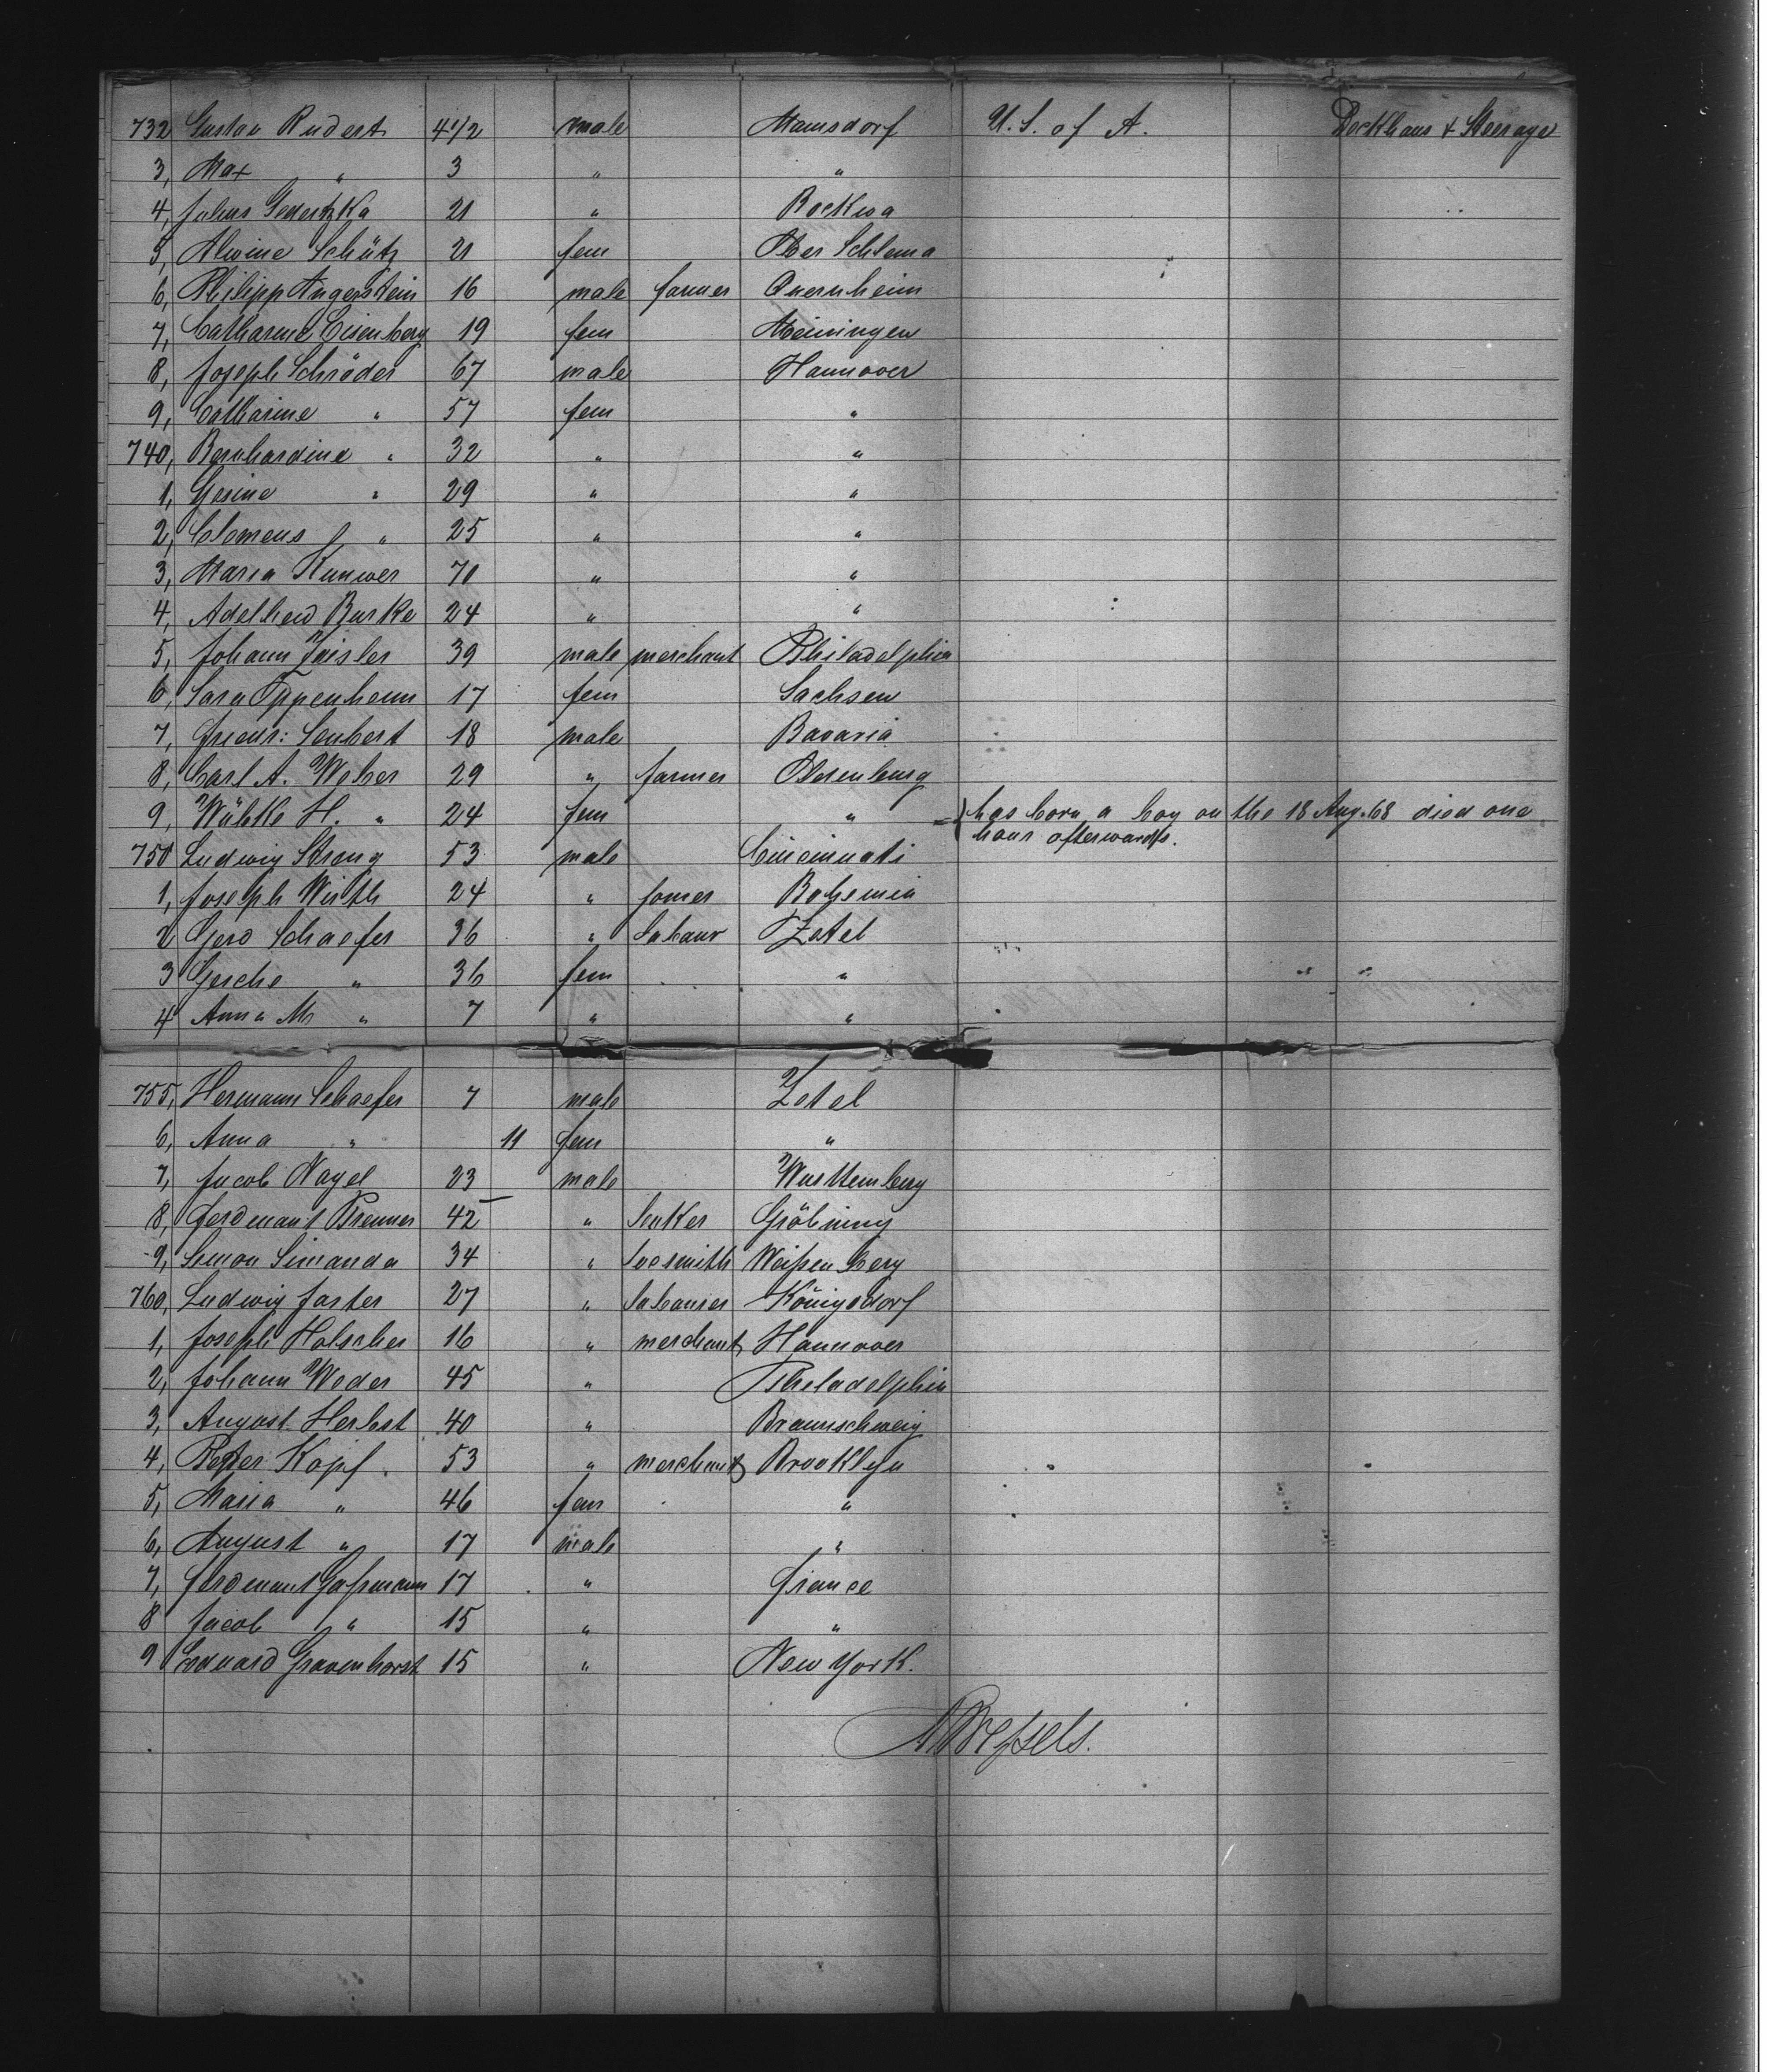 732 Gustav Rudert 4 1/2 male Mamsdorf U. S. of A. Deckhaus & Steerage
3, Max " 3 " "
4, Julius 21 " Bockwa
5, Alwine Schütz 21 fem Ober Schlema
6, Philipp Angerstein 16 male farmer Quernheim
7, Catharine Eisenberg 19 fem Meiningen
8, Joseph Schröder 67 male Hannover
9, Catharine " 57 fem "
740, Bernhardine " 32 " "
1, Gesine " 29 " "
2, Clemens " 25 " "
3, Maria 70 " "
4, Adelheid Burke 24 " "
5, Johann 39 male merchant Philadelphia
6, Sara Oppenheim 17 fem Sachsen
7, Friedr: Seubert 18 male Bavaria
8, Carl A. Weber 29 " farmer Oldenburg
9, Wübke H. " 24 fem " = } has born a boy on the 18 Aug. 68 died one
hour afterwards.
750 Ludwig Streng 53 male Cincinnati
1, Joseph Wirth 24 " farmer Bohemia
2 Gerd Schaefer 36 " Zetel
3 Gesche " 36 fem "
4 Anna M " 7 " "
755, Hermann Schaefer 7 male Zetel
6, Anna " 11 fem "
7, Jacob Nagel 23 male Wurttemberg
8, Ferdinant Brenner 42 " Gröbning
9, Simon Simanda 34 " Weißenberg
760, Ludwig Faster 27 " Labourer Königsdorf
1, Joseph Holscher 16 " merchant Hannover
2, Johann Weder 45 " Philadelphia
3, August Herbst 40 " Braunschweig
4, Peter Kopf 53 " merchant Brooklyn
5, Maria " 46 fem "
6, August " 17 male "
7, Ferdinant Gaßmann 17 " France
8 Jacob " 15 " "
9 Eduard Gravenhorst 15 " New York.
Weßels.